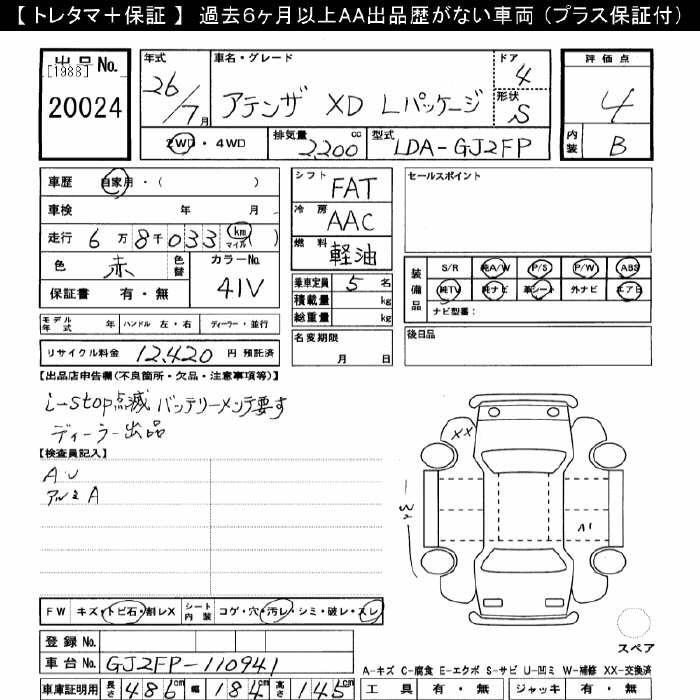 【 トレタマ＋保証 】 過去6ヶ月以上AA出品歴がない車両 (プラス保証付)
出品No. [1988] 20024
年式 26/7月
車名・グレード アテンザ XD Lパッケージ
ドア 4
形状 S
評価点 4
内装 B
2WD・4WD
排気量 2200 cc
型式 LDA-GJ2FP
車歴 自家用・( )
車検 年 月
走行 6万8千033 km マイル ( )
色 赤 色替 カラーNo. 41V
保証書 有・無
シフト FAT
冷房 AAC
燃料 軽油
乗車定員 5名
積載量 kg
総重量 kg
セールスポイント
装備品 S/R 純A/W P/S P/W ABS
純TV 純ナビ 革シート 外ナビ エアB
ナビ型番：
モデル年式 年 ハンドル 左・右 ディーラー・並行
名変期限 月 日
後日品
リサイクル料金 12,420 円 預託済
【出品店申告欄(不良箇所・欠品・注意事項等)】
i-stop点滅 バッテリーメンテ要す
ディーラー出品
【検査員記入】
A・U
アルミA
XX
A1
FW キズ・トビ石・割レX シート内装 コゲ・穴・汚レ・シミ・破レ・スレ
登録No.
車台No. GJ2FP-110941
車庫証明用 長さ 486cm 幅 184cm 高さ 145cm
スペア
A-キズ C-腐食 E-エクボ S-サビ U-凹ミ W-補修 XX-交換済
工具 有・無 ジャッキ 有・無